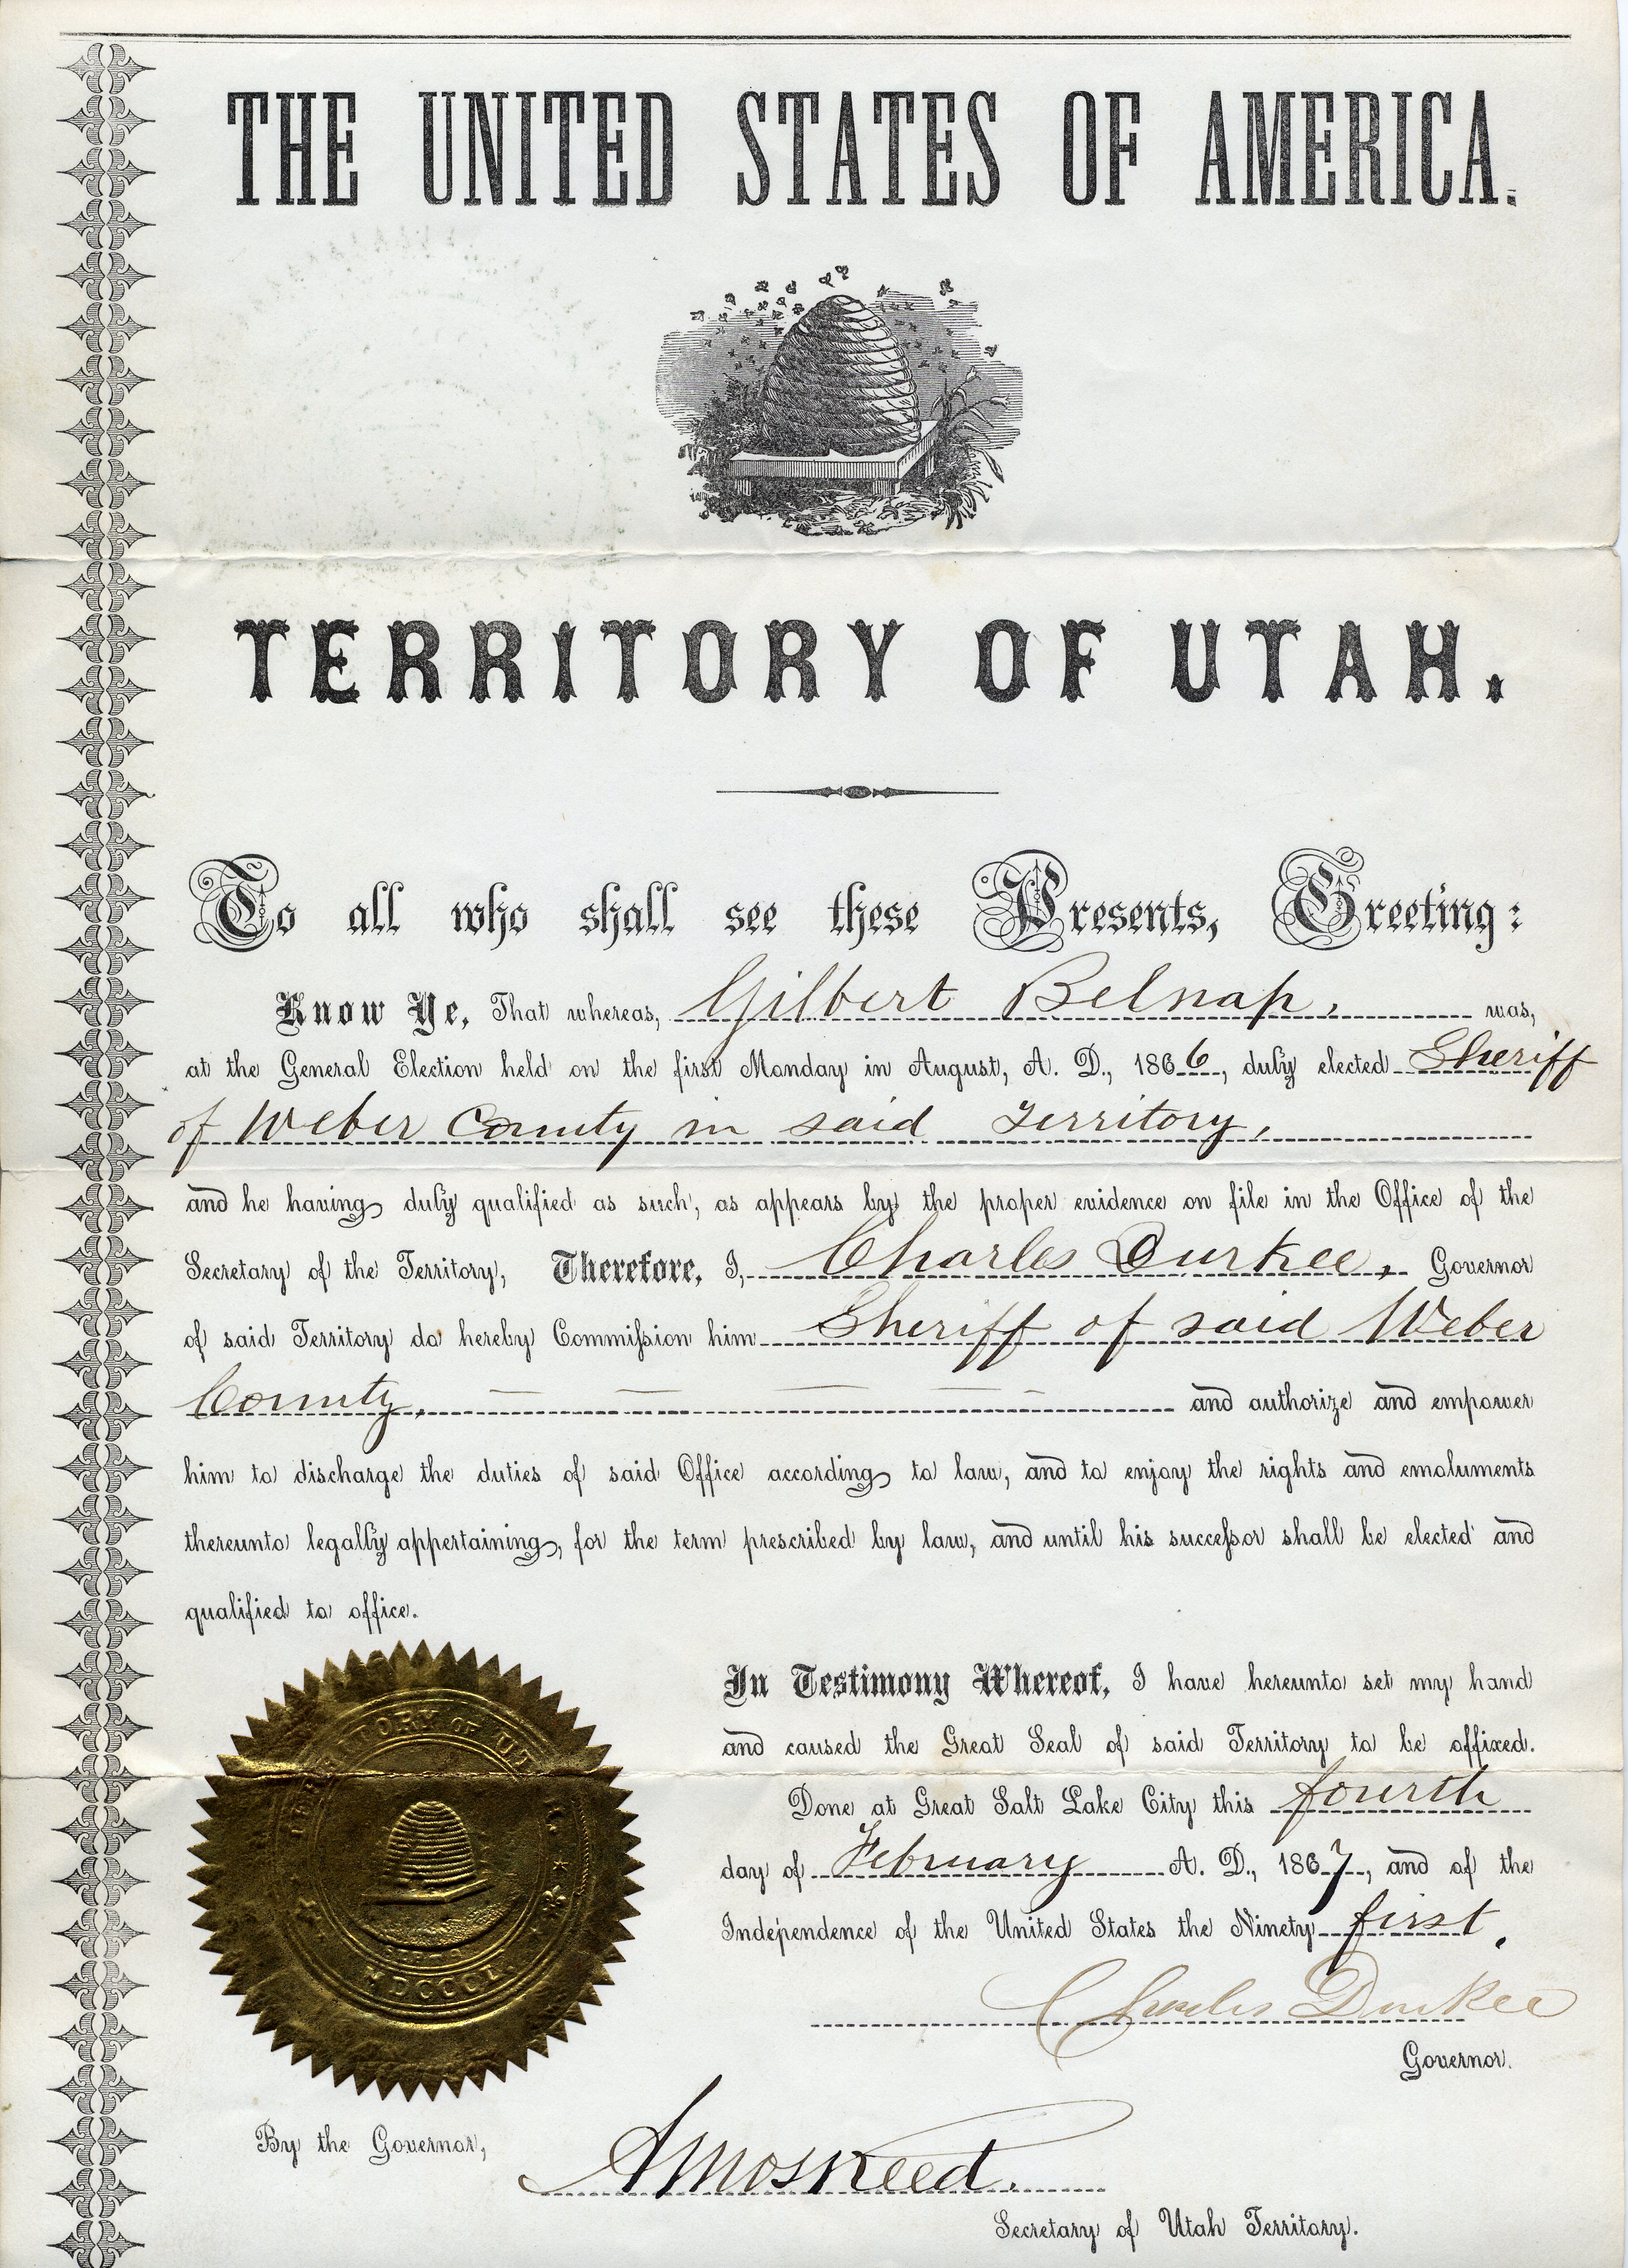 THE UNITED STATES OF AMERICA.
TERRITORY OF UTAH.
To all who shall see these Presents, Greeting:
Know Ye, That whereas, Gilbert Belnap, was,
at the General Election held on the first Monday in August, A. D., 1866, duly elected Sheriff
of Weber County in said Territory,
and he having duly qualified as such, as appears by the proper evidence on file in the Office of the
Secretary of the Territory, Therefore, I, Charles Durkee, Governor
of said Territory do hereby Commission him Sheriff of said Weber
County, and authorize and empower
him to discharge the duties of said Office according to law, and to enjoy the rights and emoluments
thereunto legally appertaining, for the term prescribed by law, and until his successor shall be elected and
qualified to office.
In Testimony Whereof, I have hereunto set my hand
and caused the Great Seal of said Territory to be affixed.
Done at Great Salt Lake City this fourth
day of February A. D., 1867, and of the
Independence of the United States the Ninety first.
Charles Durkee
Governor.
By the Governor,
Amos Reed.
Secretary of Utah Territory.